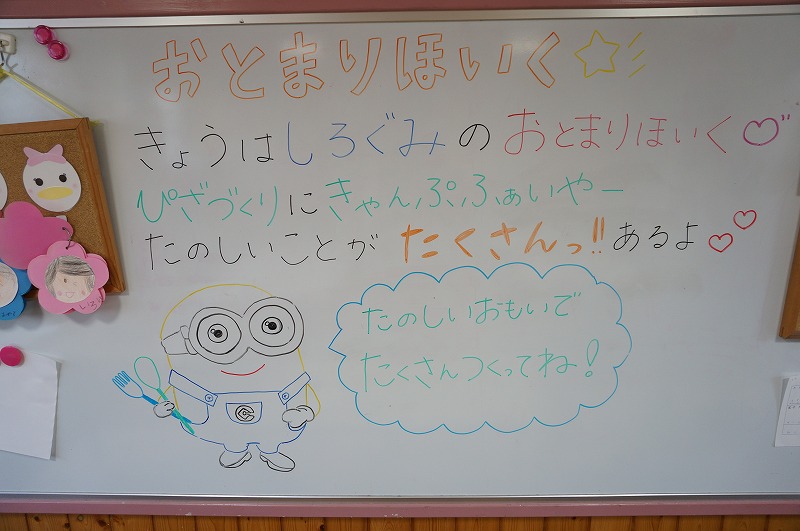 おとまりほいく☆
きょうはしろぐみのおとまりほいく♡
ぴざづくりにきゃんぷふぁいやー
たのしいことがたくさんっ!!あるよ♡♡
たのしいおもいで
たくさんつくってね!